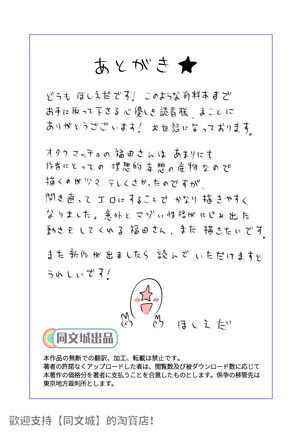 あとがき★
どうもほしえだです！このような有料本まで
お手に取って下さる心優しき読者様、まことに
ありがとうございます！お世話になっております。
オタクマッチョの福田さんはあまりにも
作者にとっての理想的妄想の産物なので
描くのが少々テレくさかったのですが、
開き直ってエロにすることでかなり描きやすく
なりました。意外とマゾい性格がにじみ出た
動きをしてくれる福田さん、また描きたいです。
また新作が出ましたら読んでいただけますと
うれしいです！
ほしえだ
同文城出品
本作品の無断での翻訳、加工、転載は禁止です。
著者の許諾なくアップロードした者は、閲覧数及び被ダウンロード数に応じて
本著作の価格分を著者に支払うことを合意したものとします。係争の移管先は
東京地方裁判所とします。
歡迎支持【同文城】的淘寶店！